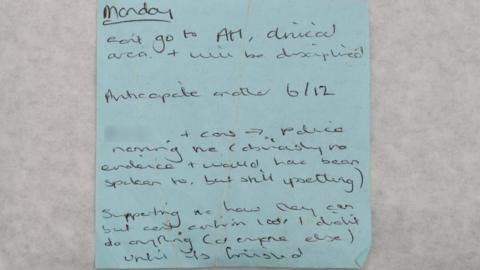 Monday
can't go to AH, clinical
area. + will be disciplined
Anticipate another 6/12
+ cons → police
naming me (obviously no
evidence + would have been
spoken to, but still upsetting)
Supporting me how they can
but can't confirm 100% I didn't
do anything (or anyone else)
until its finished